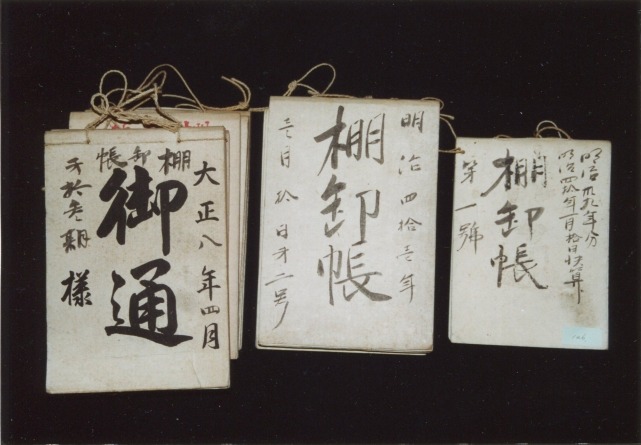 明治卅九年分
明治四拾年一月拾日決算
棚卸帳
第一號
明治四拾壱年
棚卸帳
壱月拾日
大正八年四月
棚卸帳
御通
様